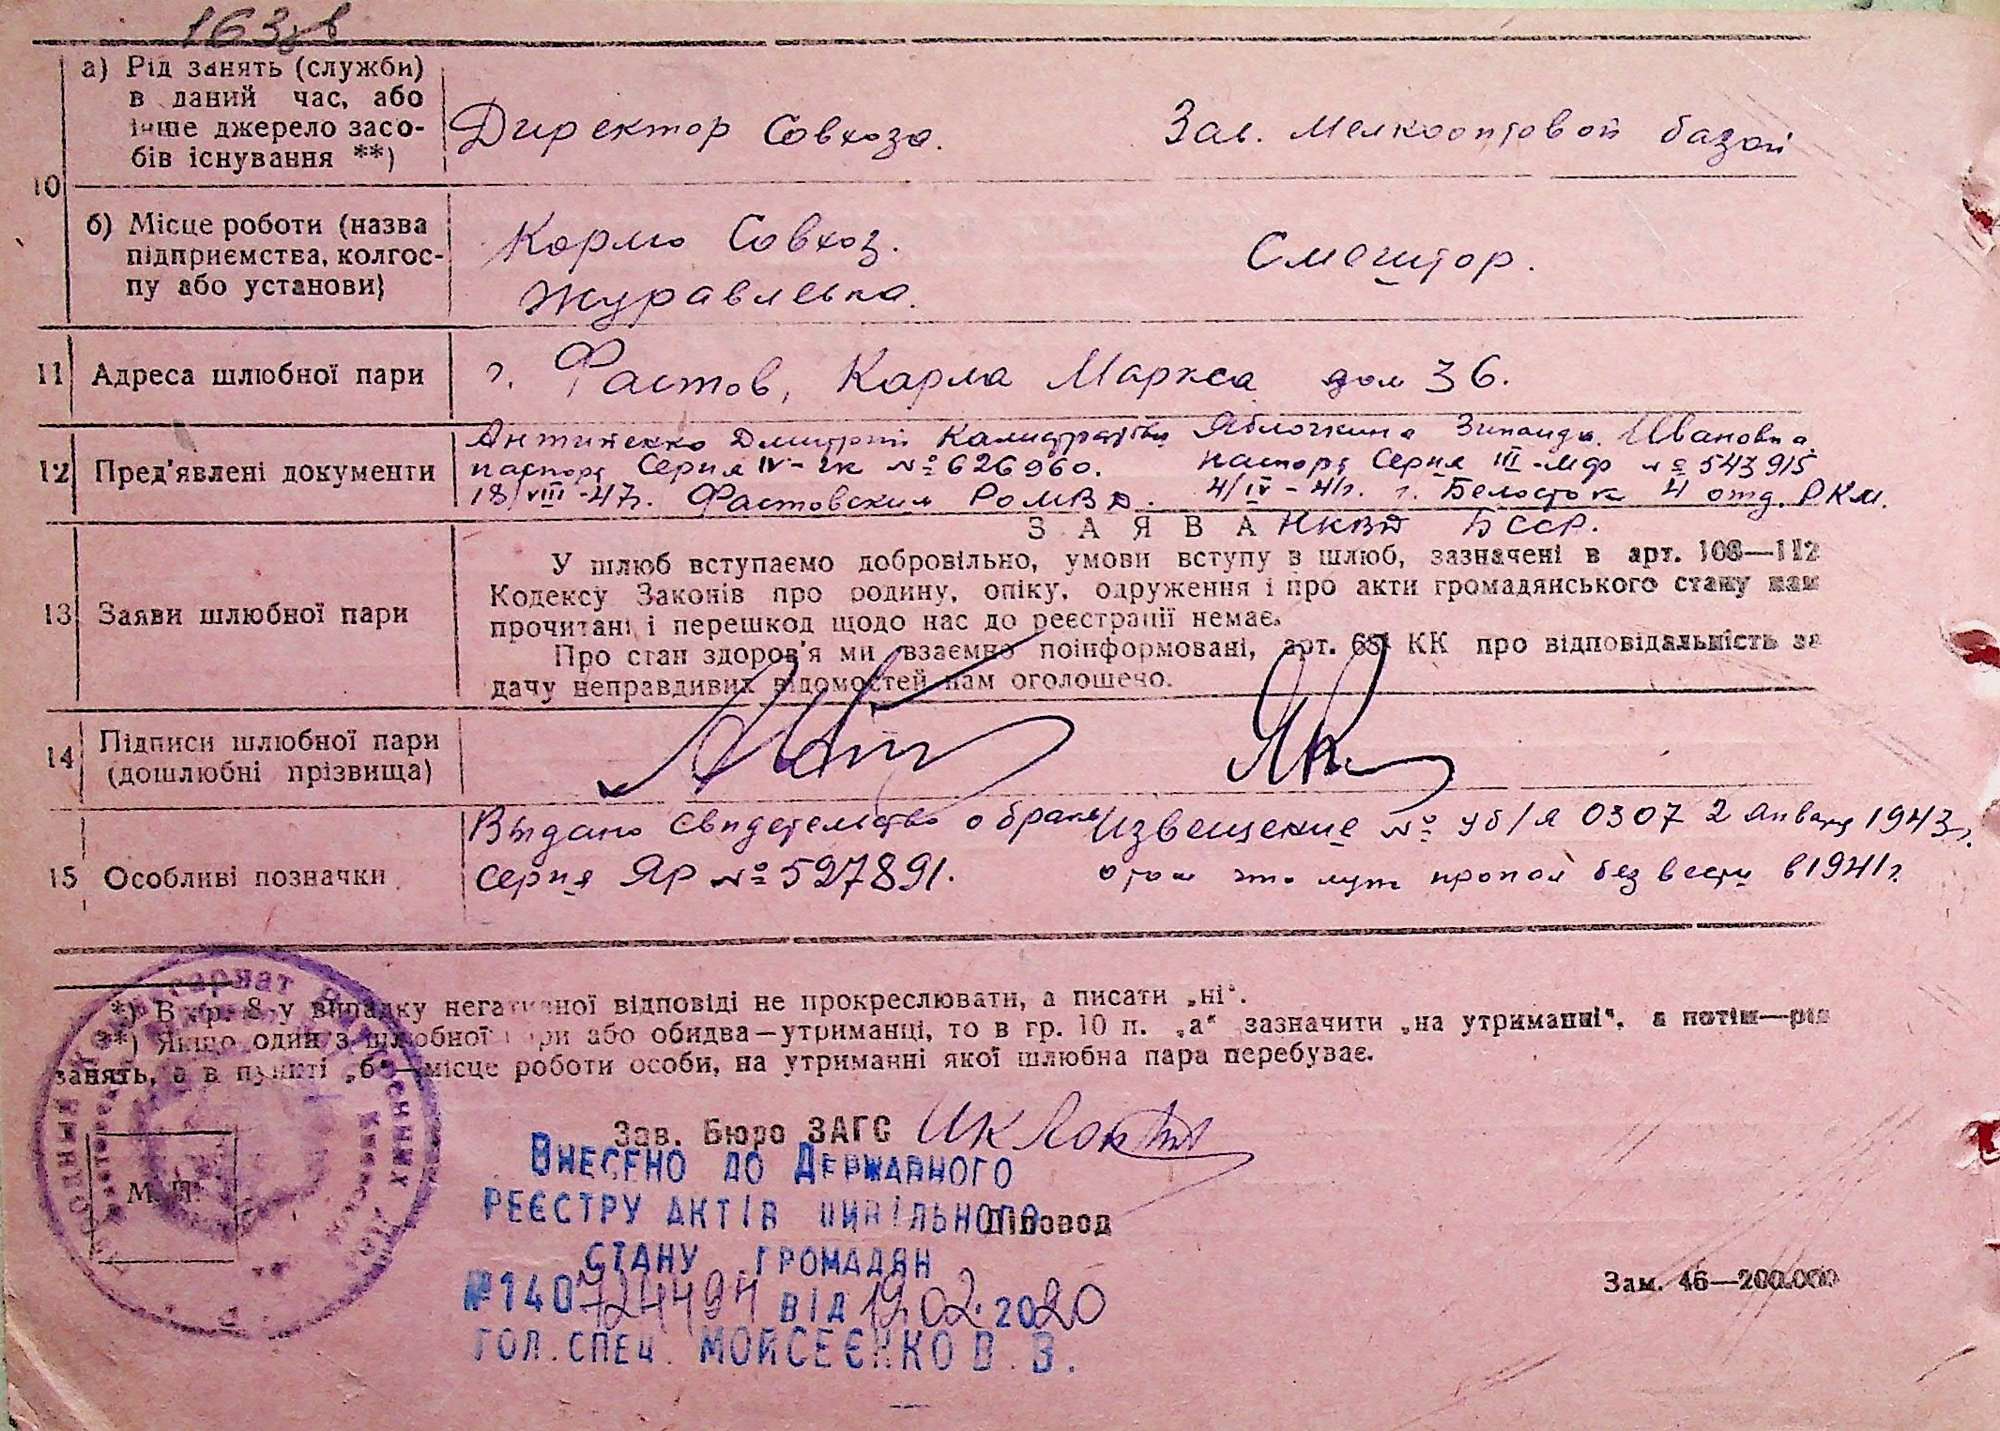 163
10
а) Рід занять (служби)
в даний час, або
інше джерело засо-
бів існування **)
Директор Совхоза.
Зав. Мелкооптовой базой
б) Місце роботи (назва
підприємства, колгос-
пу або установи)
Кормо Совхоз.
Журавлевка.
Смешторг.
11 Адреса шлюбної пари
г. Фастов, Карла Маркса дом 36.
12 Пред'явлені документи
Антипенко Дмитрий
паспорт Серия IV-ЧК № 626960.
18/VIII-47г. Фастовским РОМВД.
Яблочкина Зинаида Ивановна
паспорт Серия III-МФ № 543915
4/IV-41г. г. Белосток 4 отд. РКМ.
НКВД БССР.
13 Заяви шлюбної пари
ЗАЯВА
У шлюб вступаємо добровільно, умови вступу в шлюб, зазначені в арт. 108—112
Кодексу Законів про родину, опіку, одруження і про акти громадянського стану нам
прочитані і перешкод щодо нас до реєстрації немає.
Про стан здоров'я ми взаємно поінформовані, арт. КК про відповідальність за
дачу неправдивих відомостей нам оголошено.
14 Підписи шлюбної пари
(дошлюбні прізвища)
15 Особливі позначки
Выдано свидетельство о браке
серия ЯР № 527891.
Извещение № уб/я 0307 2 января 1943г.
о том что муж пропал без вести в 1941г.
*) В гр. 8 у випадку негативної відповіді не прокреслювати, а писати „ні".
**) Якщо один з шлюбної пари або обидва—утриманці, то в гр. 10 п. „а" зазначити „на утриманні", а потім—рід
занять, а в пункті „б"—місце роботи особи, на утриманні якої шлюбна пара перебуває.
Зав. Бюро ЗАГС
М. П.
Діловод
Внесено до Державного
реєстру актів цивільного
стану громадян
№ 140724494 від 19.02.2020
гол. спец. Мойсеєнко В. В.
Зам. 46—200.000